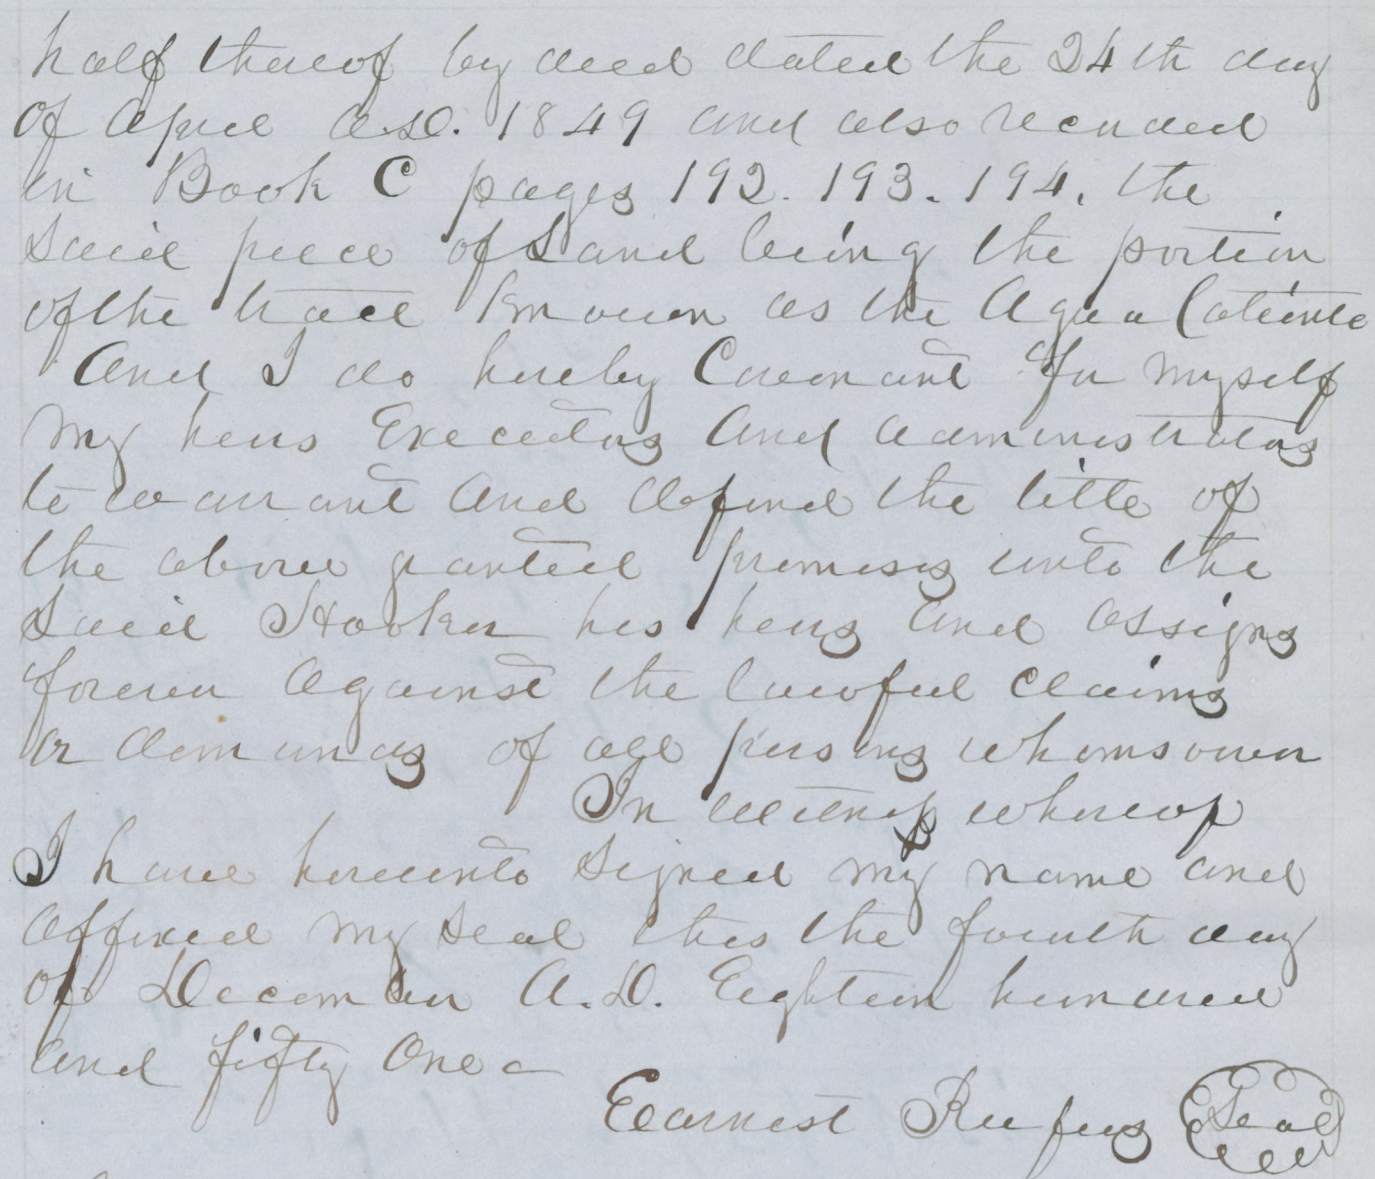 half thereof by deed dated the 24th day
of April A.D. 1849 and also recorded
in Book C pages 192. 193. 194. the
Said piece of Land being the portion
of the tract Known as the Agua Caliente
And I do hereby Covenant for myself
my heirs Executors And administrators
to warrant And defend the title of
the above granted premises unto the
Said Hooker his heirs and assigns
forever against the lawful claims
or demands of all persons whomsoever
In witness whereof
I have hereunto Signed my name and
affixed my seal this the fourth day
of December A.D. Eighteen hundred
and fifty One
Earnest Rufus Seal